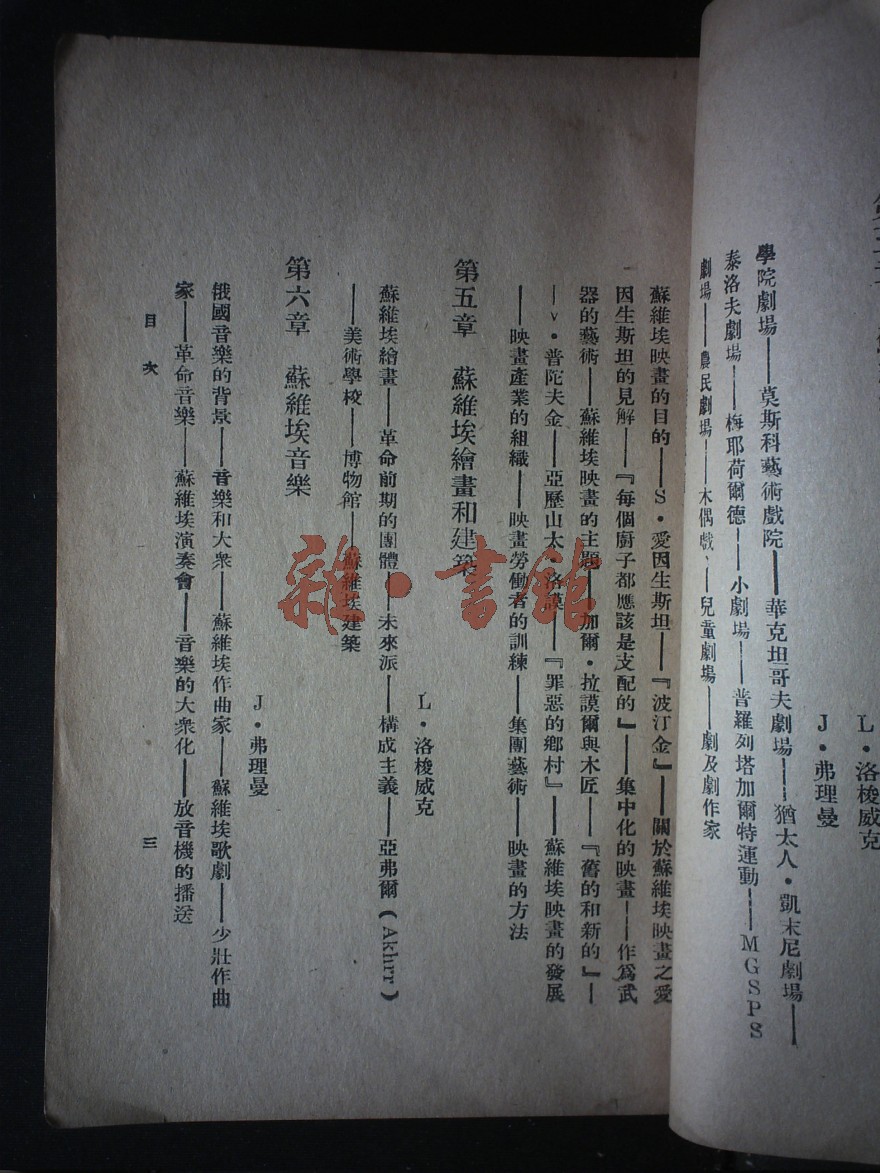 L・洛梭威克
J・弗理曼
學院劇場——莫斯科藝術戲院——華克坦哥夫劇場——猶太人・凱末尼劇場——
泰洛夫劇場——梅耶荷爾德——小劇場——普羅列塔加爾特運動——MGSPS
劇場——農民劇場——木偶戲、——兒童劇場——劇及劇作家
蘇維埃映畫的目的——S・愛因生斯坦——『波汀金』——關於蘇維埃映畫之愛
因生斯坦的見解——『每個廚子都應該是支配的』——集中化的映畫——作爲武
器的藝術——蘇維埃映畫的主題——加爾・拉謨爾與木匠——『舊的和新的』—
—V・普陀夫金——亞歷山太・洛謨——『罪惡的鄉村』——蘇維埃映畫的發展
——映畫產業的組織——映畫勞働者的訓練——集團藝術——映畫的方法
第五章　蘇維埃繪畫和建築
L・洛梭威克
蘇維埃繪畫——革命前期的團體——未來派——構成主義——亞弗爾(Akhrr)
——美術學校——博物館——蘇維埃建築
第六章　蘇維埃音樂
J・弗理曼
俄國音樂的背景——音樂和大衆——蘇維埃作曲家——蘇維埃歌劇——少壯作曲
家——革命音樂——蘇維埃演奏會——音樂的大衆化——放音機的播送
目次
三
雜・書館